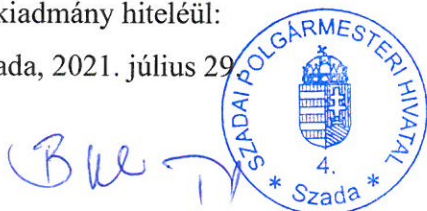 kiadmány hiteléül:
ada, 2021. július 29
SZADAI POLGÁRMESTERI HIVATAL
4.
* Szada *